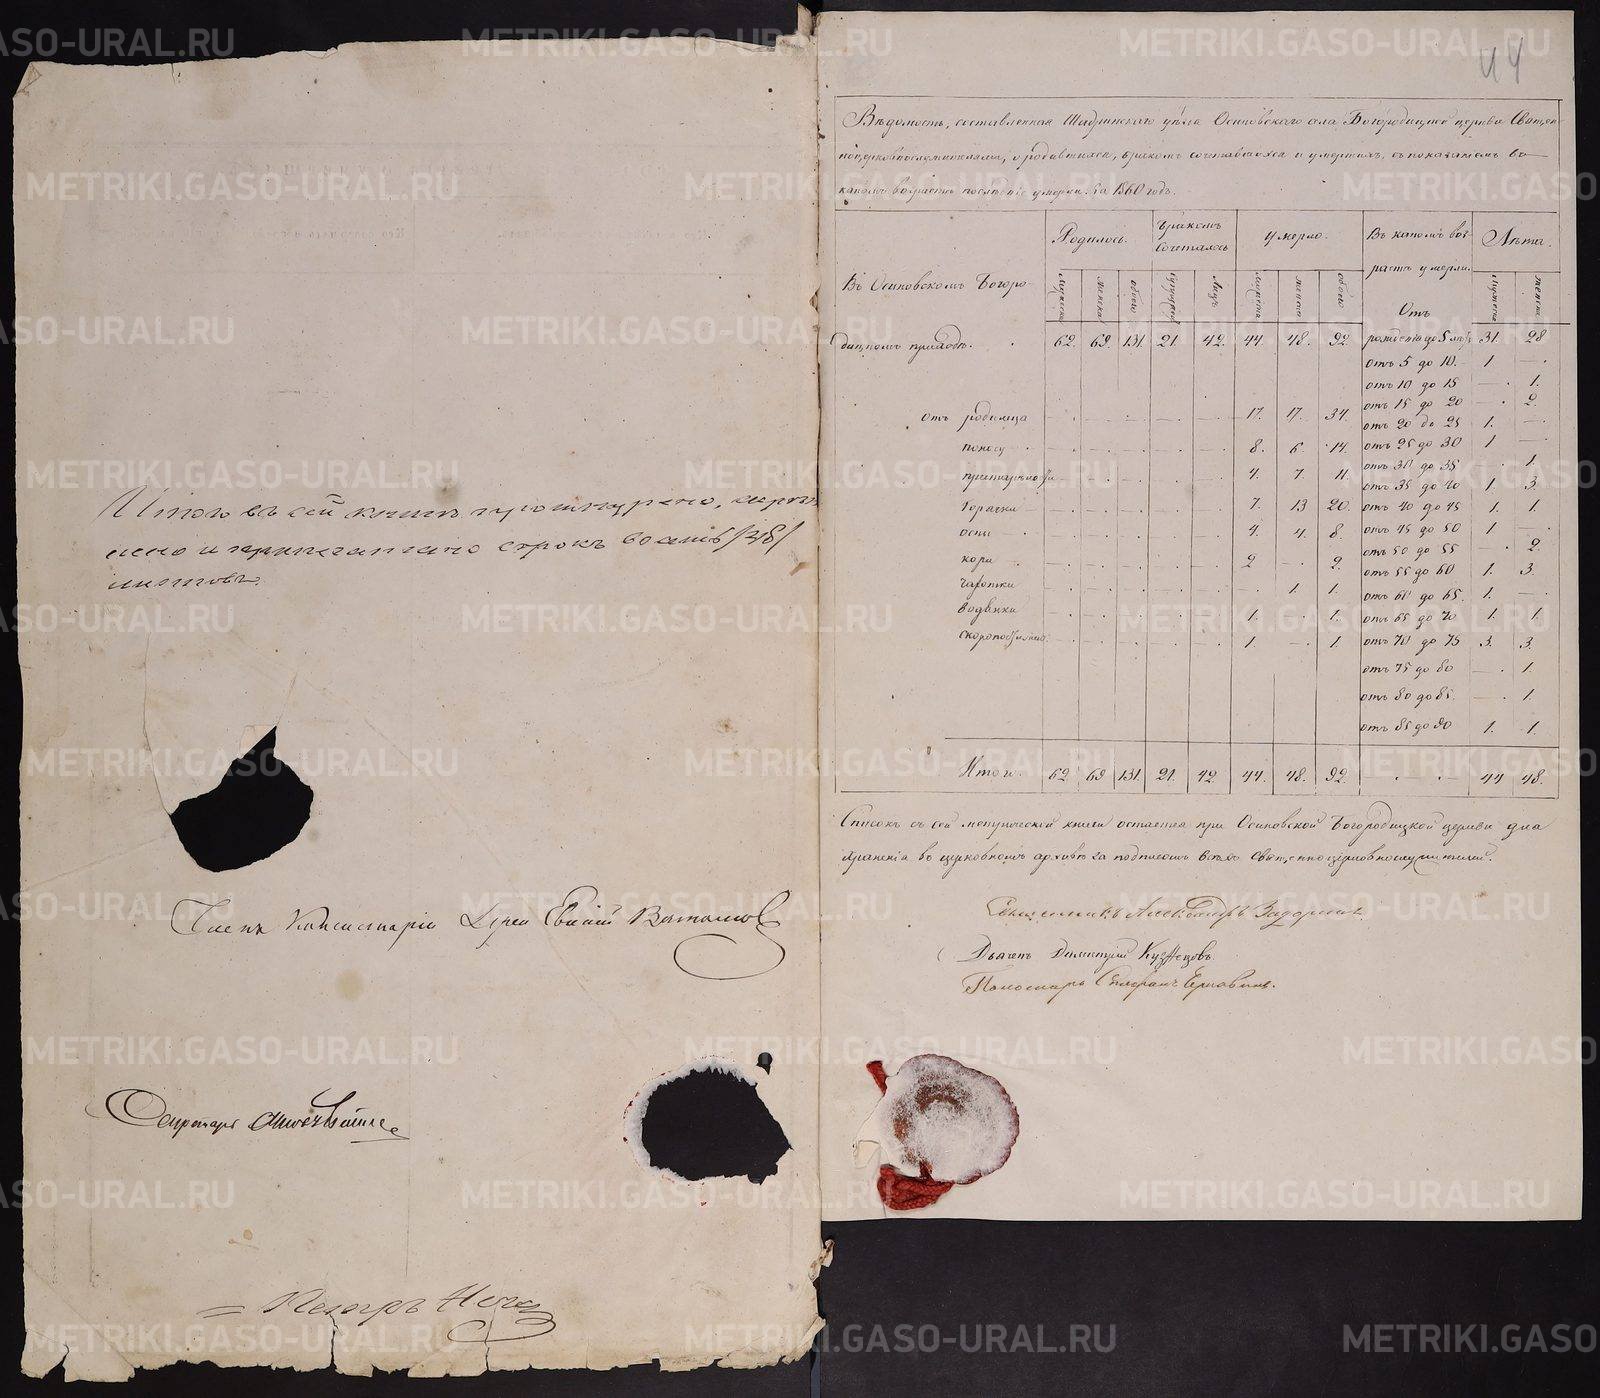 Итого въ сей книгѣ прошнурено, нерон,
лено и припечатано сорокъ восемь /48/
листовъ.
Членъ Консисторіи Іерей Евѳимій
Секретарь
44
Вѣдомость, составленная Шадринскаго уѣзда Осиновскаго села Богородицкой церкви Священ-
ноцерковнослужителями, о родившихся, бракомъ сочетавшихся и умершихъ, съ показаніемъ въ
какомъ возрастѣ послѣдніе умерли. За 1860 годъ.
Родилось. Бракомъ сочеталось Умерло. Въ какомъ воз- Лѣта.
растѣ умерли.
Въ Осиновскомъ Богоро- мужеска женска обоего супружествъ лицъ мужеска женска обоего Отъ мужеска женска
дицкомъ приходѣ. 62. 69. 131. 21. 42. 44. 48. 92. рожденія до 5 лѣтъ 31. 28
отъ 5 до 10. 1 —.
отъ 10 до 15 —. 1.
отъ родимца 17. 17. 34. отъ 15 до 20 —. 2.
отъ 20 до 25 1. —.
поносу 8. 6. 14. отъ 25 до 30 1 —.
отъ 30 до 35 . 1.
престарѣлости 4. 7. 11. отъ 35 до 40 1 3.
горячки 7. 13 20. отъ 40 до 45 1. 1.
оспы 4. 4. 8. отъ 45 до 50 1 —.
отъ 50 до 55 —. 2.
кори 2 —. 2. отъ 55 до 60 1. 3.
чахотки 1. 1. отъ 60 до 65. 1. —.
водянки 1. —. 1. отъ 65 до 70 1. 1.
скоропостижно 1. —. 1. отъ 70 до 75 3. 3.
отъ 75 до 80 —. 1.
отъ 80 до 85. —. 1.
отъ 85 до 90 1. 1.
Итого. 62. 69. 131. 21. 42. 44. 48. 92. 44 48.
Списокъ съ сей метрической книги остается при Осиновской Богородицкой церкви для
храненія въ церковномъ архивѣ за подписомъ всѣхъ священноцерковнослужителей.
Священникъ Александръ
Дьячекъ Димитрій Кузнецовъ.
Пономарь Стефанъ
METRIKI.GASO-URAL.RU